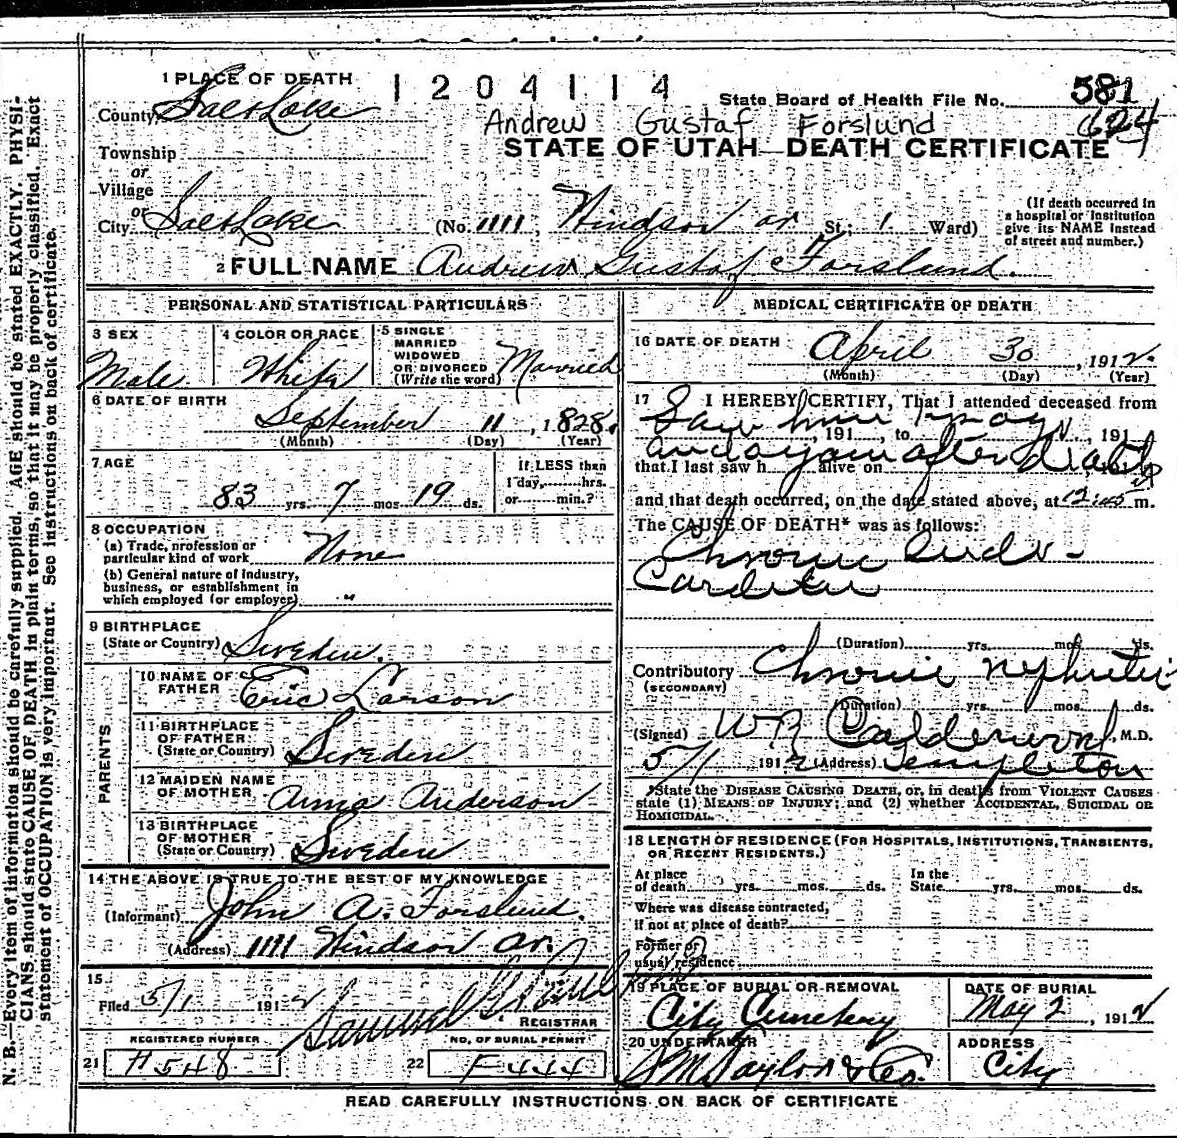 1 PLACE OF DEATH
1204114
State Board of Health File No. 581
County Salt Lake
Andrew Gustaf Forslund 624
Township
STATE OF UTAH—DEATH CERTIFICATE
or
Village
or
City Salt Lake (No. 1111, Windsor av St; 1 Ward)
(If death occurred in a hospital or institution give its NAME instead of street and number.)
2 FULL NAME Andrew Gustaf Forslund.
PERSONAL AND STATISTICAL PARTICULARS
3 SEX Male
4 COLOR OR RACE White
5 SINGLE MARRIED WIDOWED OR DIVORCED (Write the word) Married
6 DATE OF BIRTH
September 11, 1828.
(Month) (Day) (Year)
7 AGE
83 yrs. 7 mos. 19 ds.
If LESS than 1 day, hrs. or min.?
8 OCCUPATION
(a) Trade, profession or particular kind of work None
(b) General nature of industry, business, or establishment in which employed (or employer) "
9 BIRTHPLACE
(State or Country) Sweden.
PARENTS
10 NAME OF FATHER Eric Larson
11 BIRTHPLACE OF FATHER (State or Country) Sweden
12 MAIDEN NAME OF MOTHER Anna Anderson
13 BIRTHPLACE OF MOTHER (State or Country) Sweden
14 THE ABOVE IS TRUE TO THE BEST OF MY KNOWLEDGE
(Informant) John A. Forslund.
(Address) 1111 Windsor av.
15
Filed 5/1 1912 Samuel G. Paul
REGISTRAR
REGISTERED NUMBER
21 H548
NO. OF BURIAL PERMIT
22 F444
MEDICAL CERTIFICATE OF DEATH
16 DATE OF DEATH April 30, 1912.
(Month) (Day) (Year)
17 I HEREBY CERTIFY, That I attended deceased from
Saw him
, 191 , to , 191
and again after death
that I last saw h alive on
and that death occurred, on the date stated above, at 12:45 m.
The CAUSE OF DEATH* was as follows:
Chronic Endo-
Carditis
(Duration) yrs. mos. ds.
Contributory Chronic Nephritis
(SECONDARY)
(Duration) yrs. mos. ds.
(Signed) W.R Calderwood, M.D.
5/1 1912 (Address) Templeton
*State the DISEASE CAUSING DEATH, or, in deaths from VIOLENT CAUSES
state (1) MEANS OF INJURY; and (2) whether ACCIDENTAL, SUICIDAL OR
HOMICIDAL.
18 LENGTH OF RESIDENCE (FOR HOSPITALS, INSTITUTIONS, TRANSIENTS,
OR RECENT RESIDENTS.)
At place of death yrs. mos. ds. In the State yrs. mos. ds.
Where was disease contracted,
if not at place of death?
Former or
usual residence
19 PLACE OF BURIAL OR REMOVAL City Cemetery
DATE OF BURIAL May 2, 1912
20 UNDERTAKER S.M. Taylor & Co.
ADDRESS City
READ CAREFULLY INSTRUCTIONS ON BACK OF CERTIFICATE
N. B.—Every item of information should be carefully supplied. AGE should be stated EXACTLY. PHYSI-
CIANS should state CAUSE OF DEATH in plain terms, so that it may be properly classified. Exact
statement of OCCUPATION is very important. See instructions on back of certificate.